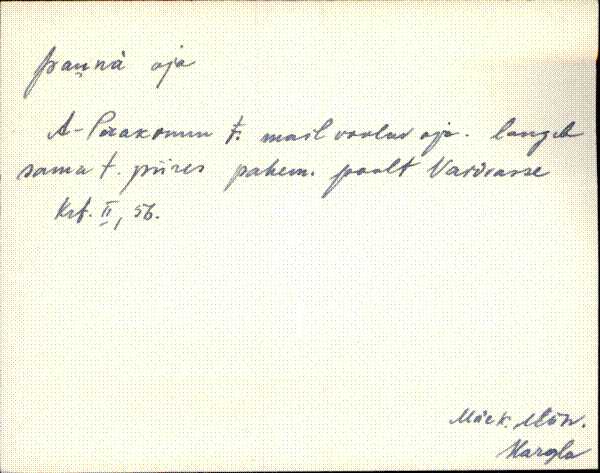 prau̯nà oja
A-Perakonnu t. maal voolav oja. langeb
sama t. piires pahem. poolt Vaidvasse
Krt. II, 56.
Mäek. Mõn.
Hargla